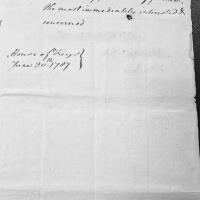 the most immediately interested &
concerned
House of Keys
June 30th 1787